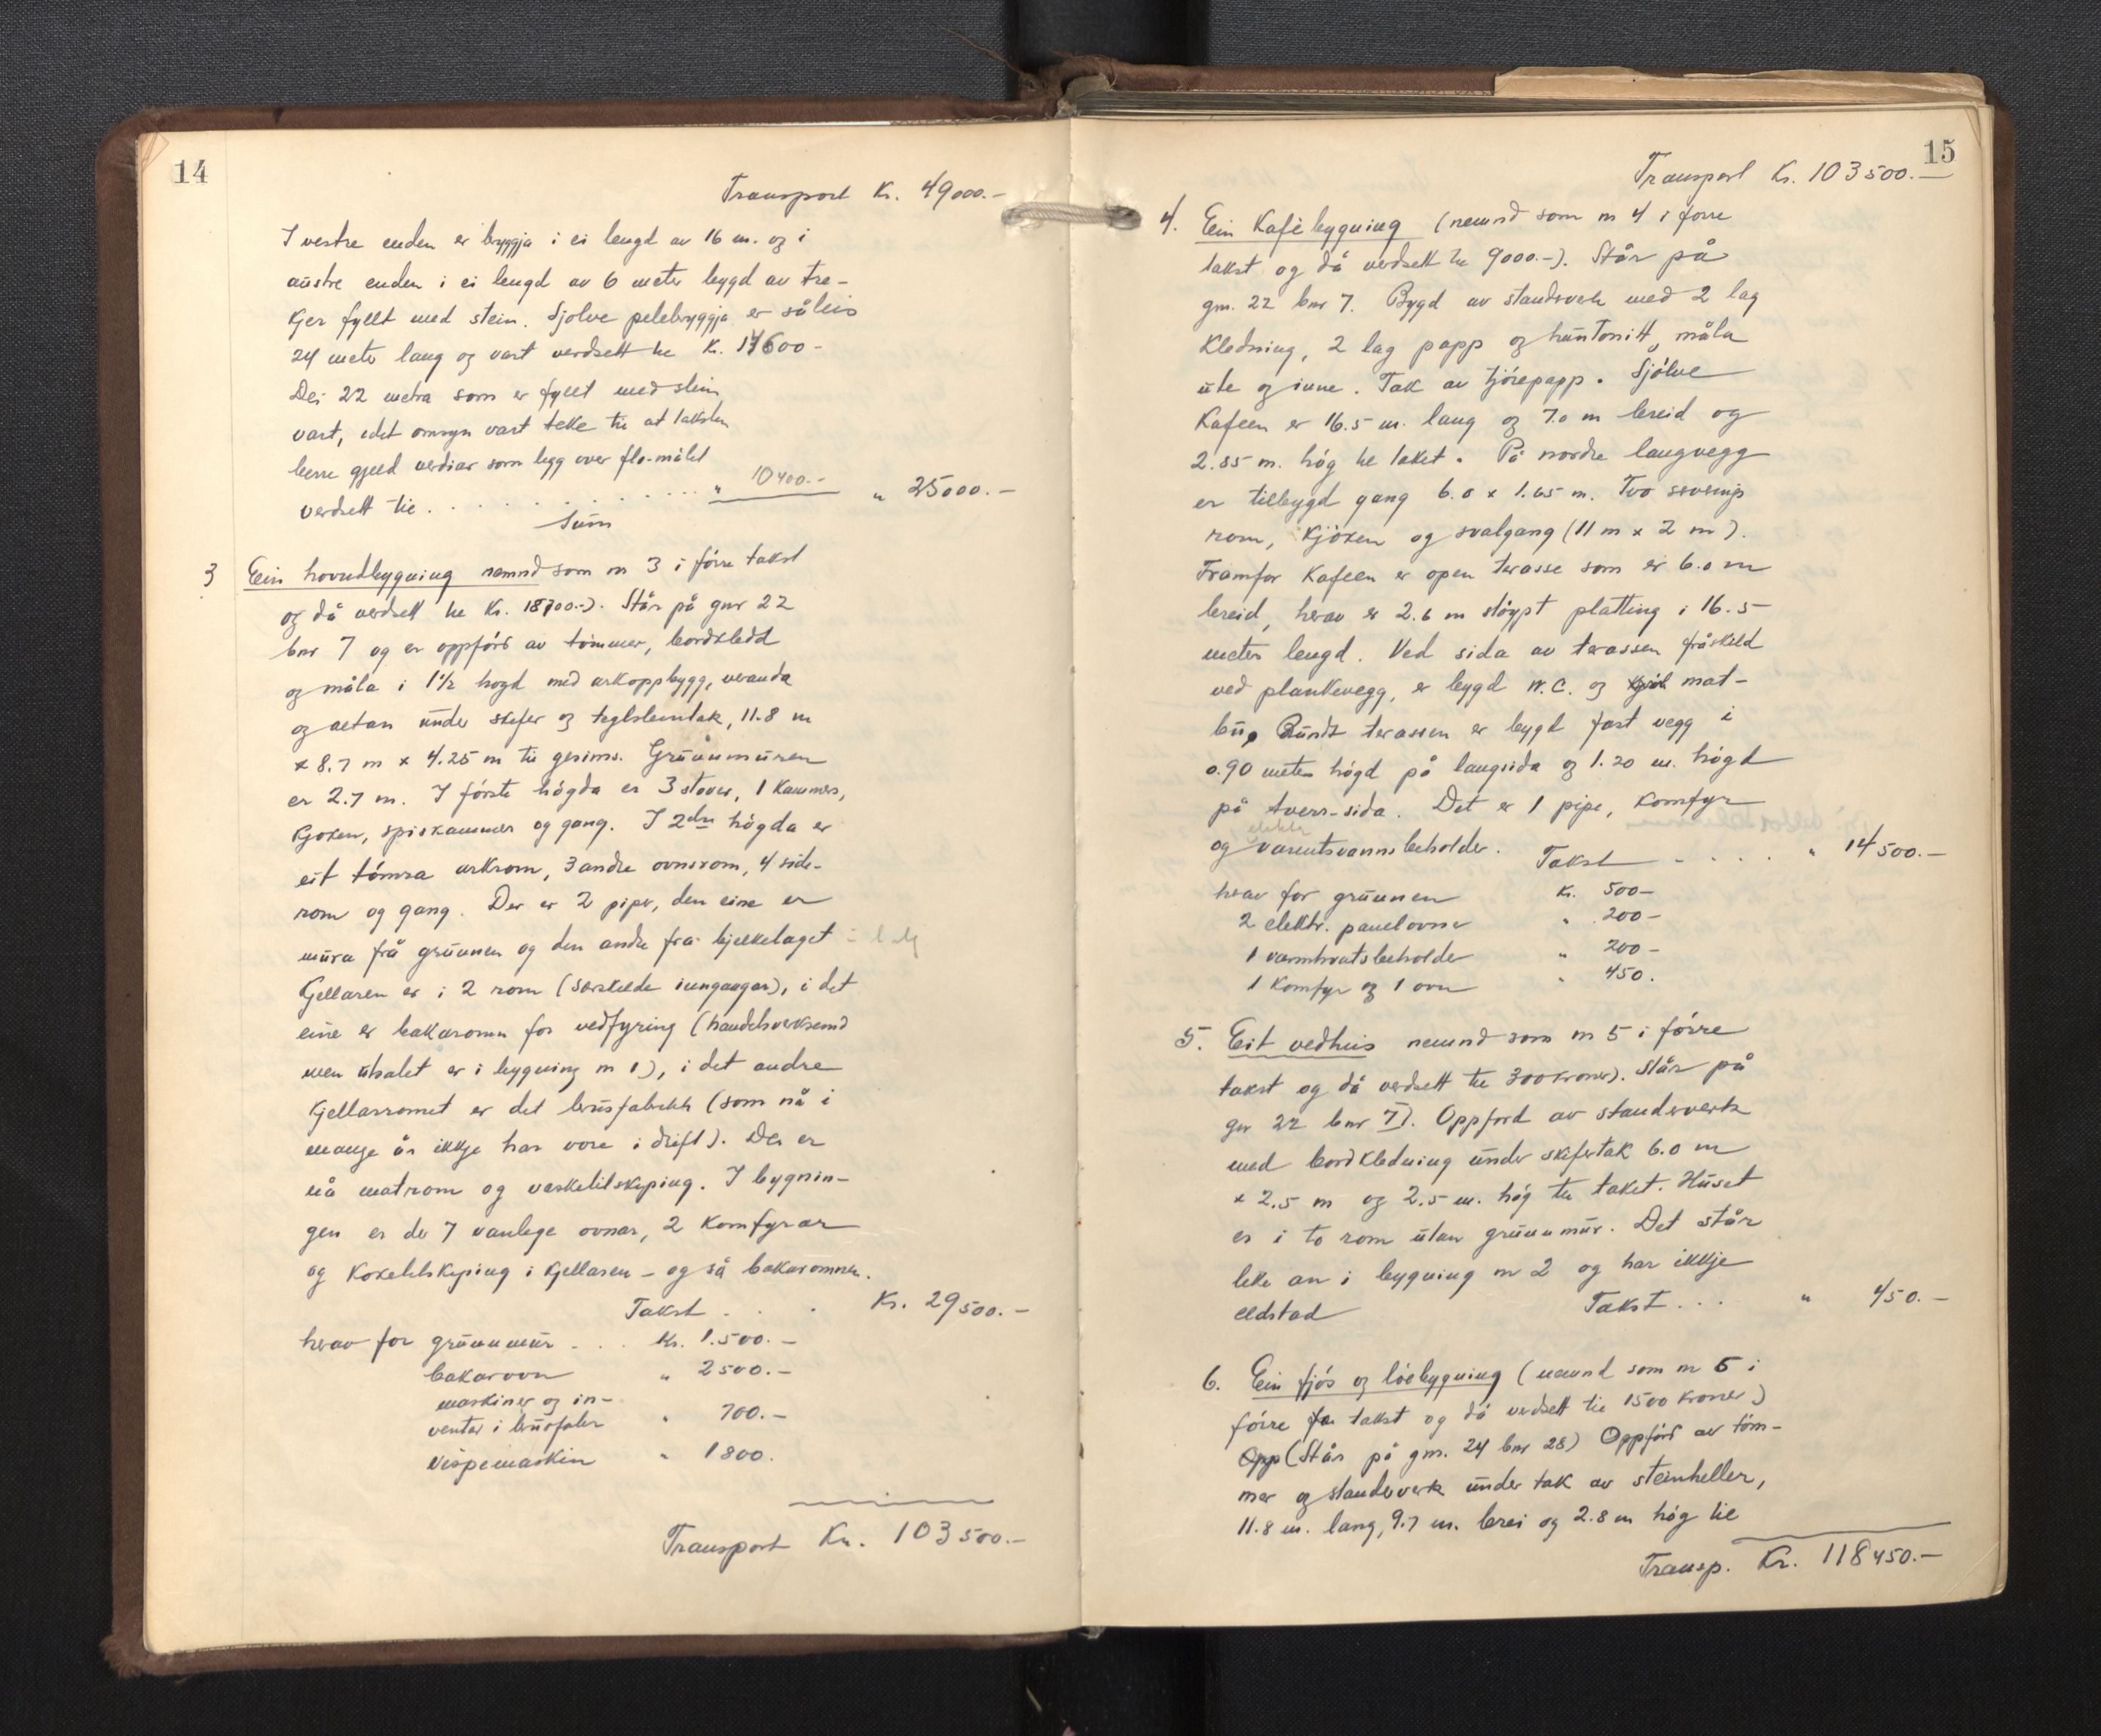 14
Transport Kr. 49000.-
I vestre enden er bryggja i ei lengd av 16 m. og i
austre enden i ei lengd av 6 meter bygd av tre-
kjer fyllt med stein. Sjølve pelebryggja er såleis
24 meter lang og vart verdsett til Kr. 14600-
Dei 22 metra som er fyllt med stein
vart, idet omsyn vart teke til at taksten
berre gjeld verdiar som ligg over flo-målet
verdsett til . . . . . . . . . . . . " 10400.- " 25000.-
Sum
3 Ein hovudbygning nemnd som nr 3 i førre takst
og då verdsett til Kr. 18700.-). Står på gnr 22
bnr 7 og er oppførd av tømmer, bordkledd
og måla i 1½ høgd med arkoppbygg, veranda
og altan under skifer og teglsteintak, 11.8 m
x 8.7 m x 4.25 m til gesims. Grunnmuren
er 2.7 m. I første høgda er 3 stover, 1 kammers,
kjøken, spiskammer og gang. I 2dre høgda er
eit tømra arkrom, 3 andre ovnsrom, 4 side-
rom og gang. Der er 2 piper, den eine er
mura frå grunnen og den andre frå bjelkelaget
Kjellaren er i 2 rom (særskilde inngangar), i det
eine er bakaromn for vedfyring (handelsverksemd
men utsalet er i bygning nr 1), i det andre
kjellarromet er det brusfabrikk (som nå i
mange år ikkje har vore i drift). Der er
nå matrom og vasketilskiping. I bygnin-
gen er der 7 vanlege ovnar, 2 komfyrar
og koketilskiping i kjellaren - og så bakaromnen.
Takst . . . Kr. 29500.-
herav for grunnmur . . . Kr. 1.500.-
bakarovn " 2500.-
maskiner og in-
ventar i brusfabr " 700.-
vispemaskin " 1800.
Transport Kr. 103500.-
15
Transport Kr. 103500.-
4. Ein Kafébygning (nemnd som nr 4 i førre
takst og då verdsett til 9000.-). Står på
gnr. 22 bnr 7. Bygd av standverk med 2 lag
kledning, 2 lag papp og huntonitt, måla
ute og inne. Tak av tjørepapp. Sjølve
Kafeen er 16.5 m. lang og 7.0 m breid og
2.85 m. høg til taket. På nordre langvegg
er tilbygd gang 6.0 x 1.65 m. Tvo serverings
rom, kjøken og svalgang (11 m x 2 m).
Framfor Kafeen er open terasse som er 6.0 m
breid, herav er 2.6 m støypt platting i 16.5
meter lengd. Ved sida av terassen fråskild
ved plankevegg, er bygd W.C. og mat-
bu. Rundt terassen er bygd fast vegg i
0.90 meter høgd på langsida og 1.20 m. høgd
på tverr-sida. Det er 1 pipe, komfyr
elektr
og varmtsvannsbeholder. Takst - . . . . " 14500.-
herav for grunnen Kr. 500-
2 elektr. panelovner " 200-
1 varmtvatsbeholder " 200-
1 Komfyr og 1 ovn " 450.
5. Eit vedhus nemnd som nr 5 i førre
takst og då verdsett til 300 kroner). Står på
gnr 22 bnr 7). Oppførd av standsverk
med bordkledning under skifertak 6.0 m
x 2.5 m og 2.5 m. høg til taket. Huset
er i to rom utan grunnmur. Det står
like an i bygning nr 2 og har ikkje
eldstad Takst . . . " 450.-
6. Ein fjøs og løebygning (nemnd som nr 6 i
førre takst og då verdsett til 1500 kroner)
Opp (Står på gnr. 24 bnr 28) Oppførd av tøm-
mer og standsverk under tak av steinheller,
11.8 m. lang, 9.7 m. brei og 2.8 m høg til
Transp. Kr. 118450.-